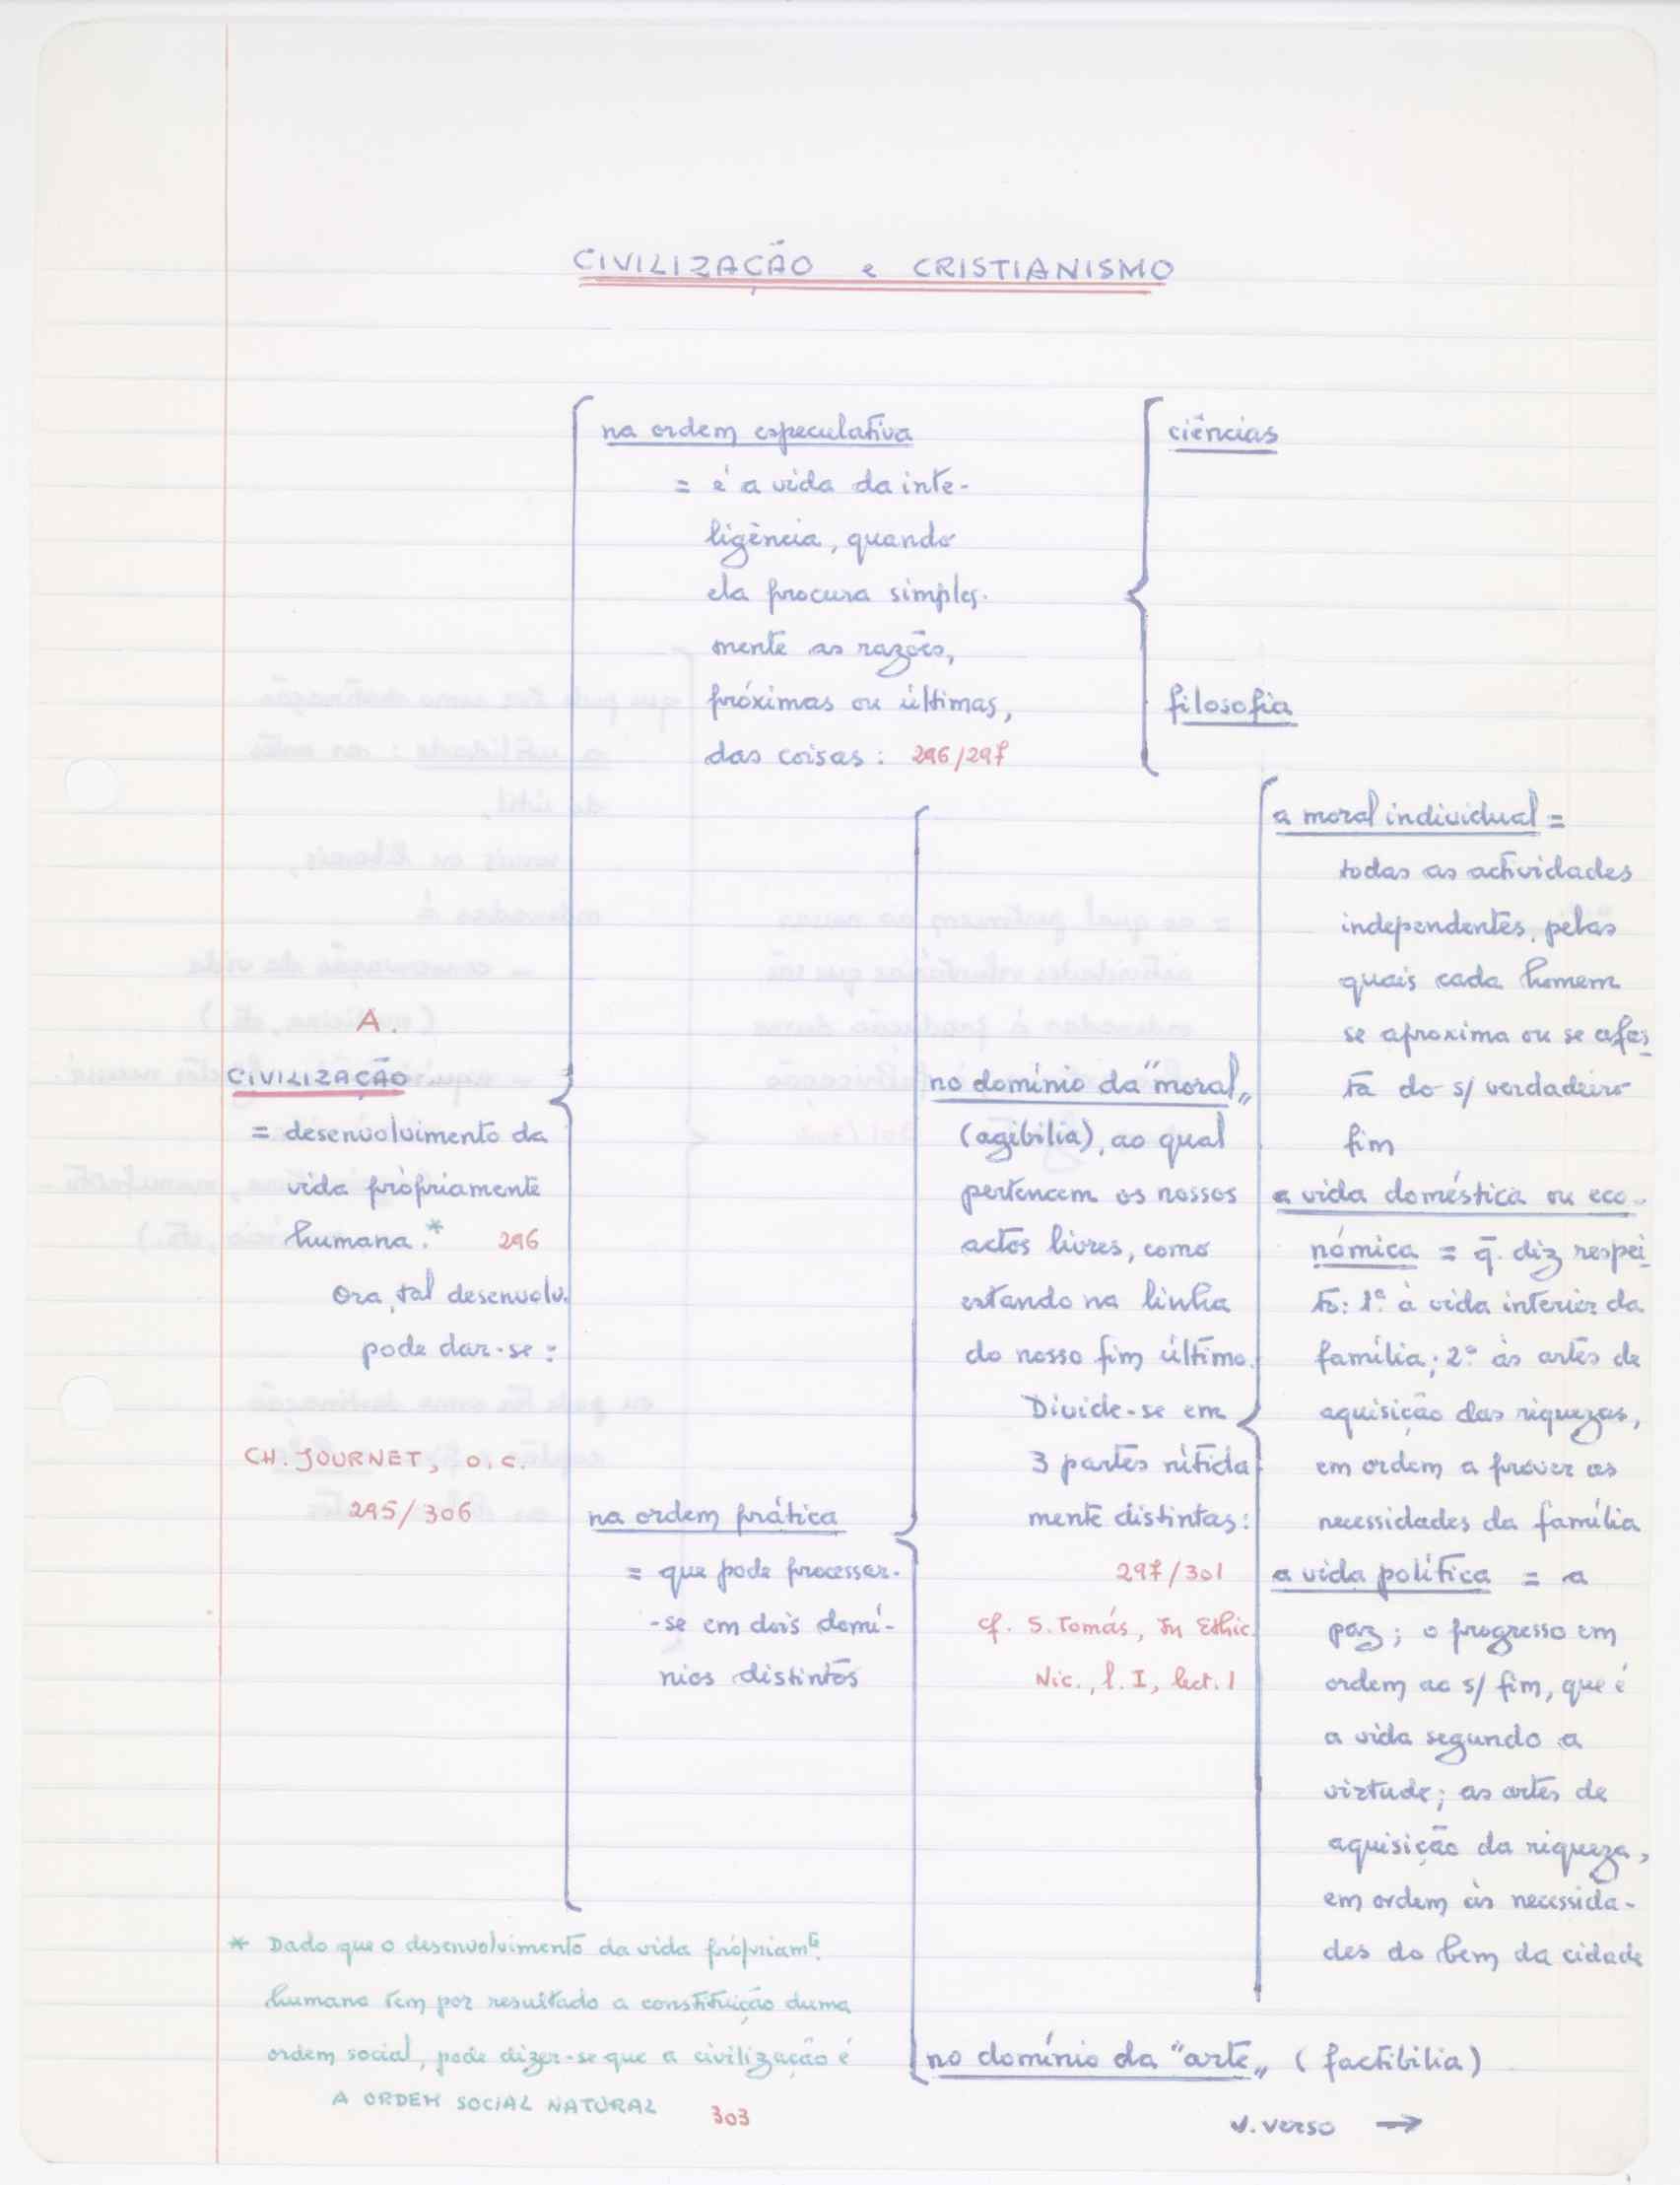 CIVILIZAÇÃO e CRISTIANISMO
A.
CIVILIZAÇÃO
= desenvolvimento da
vida pròpriamente
humana.* 296
Ora, tal desenvolv.
pode dar-se:
CH. JOURNET, o. c.
295/306
na ordem especulativa
= é a vida da inte-
ligência, quando
ela procura simples-
mente as razões,
próximas ou últimas,
das coisas: 296/297
ciências
filosofia
na ordem prática
= que pode processar-
-se em dois domí-
nios distintos
no domínio da "moral„
(agibilia), ao qual
pertencem os nossos
actos livres, como
estando na linha
do nosso fim último.
Divide-se em
3 partes nìtida
mente distintas:
297/301
cf. S. Tomás, In Ethic.
Nic., l. I, lect. 1
a moral individual =
todas as actividades
independentes, pelas
quais cada homem
se aproxima ou se afas
ta do s/ verdadeiro
fim
a vida doméstica ou eco-
nómica = q̄. diz respei
to: 1º à vida interior da
família; 2º às artes de
aquisição das riquezas,
em ordem a prover as
necessidades da família
a vida política = a
paz; o progresso em
ordem ao s/ fim, que é
a vida segundo a
virtude; as artes de
aquisição da riqueza,
em ordem às necessida-
des do bem da cidade
no domínio da "arte„ (factibilia)
v. verso →
* Dado que o desenvolvimento da vida pròpriamᵗᵉ
humana tem por resultado a constituição duma
ordem social, pode dizer-se que a civilização é
A ORDEM SOCIAL NATURAL 303